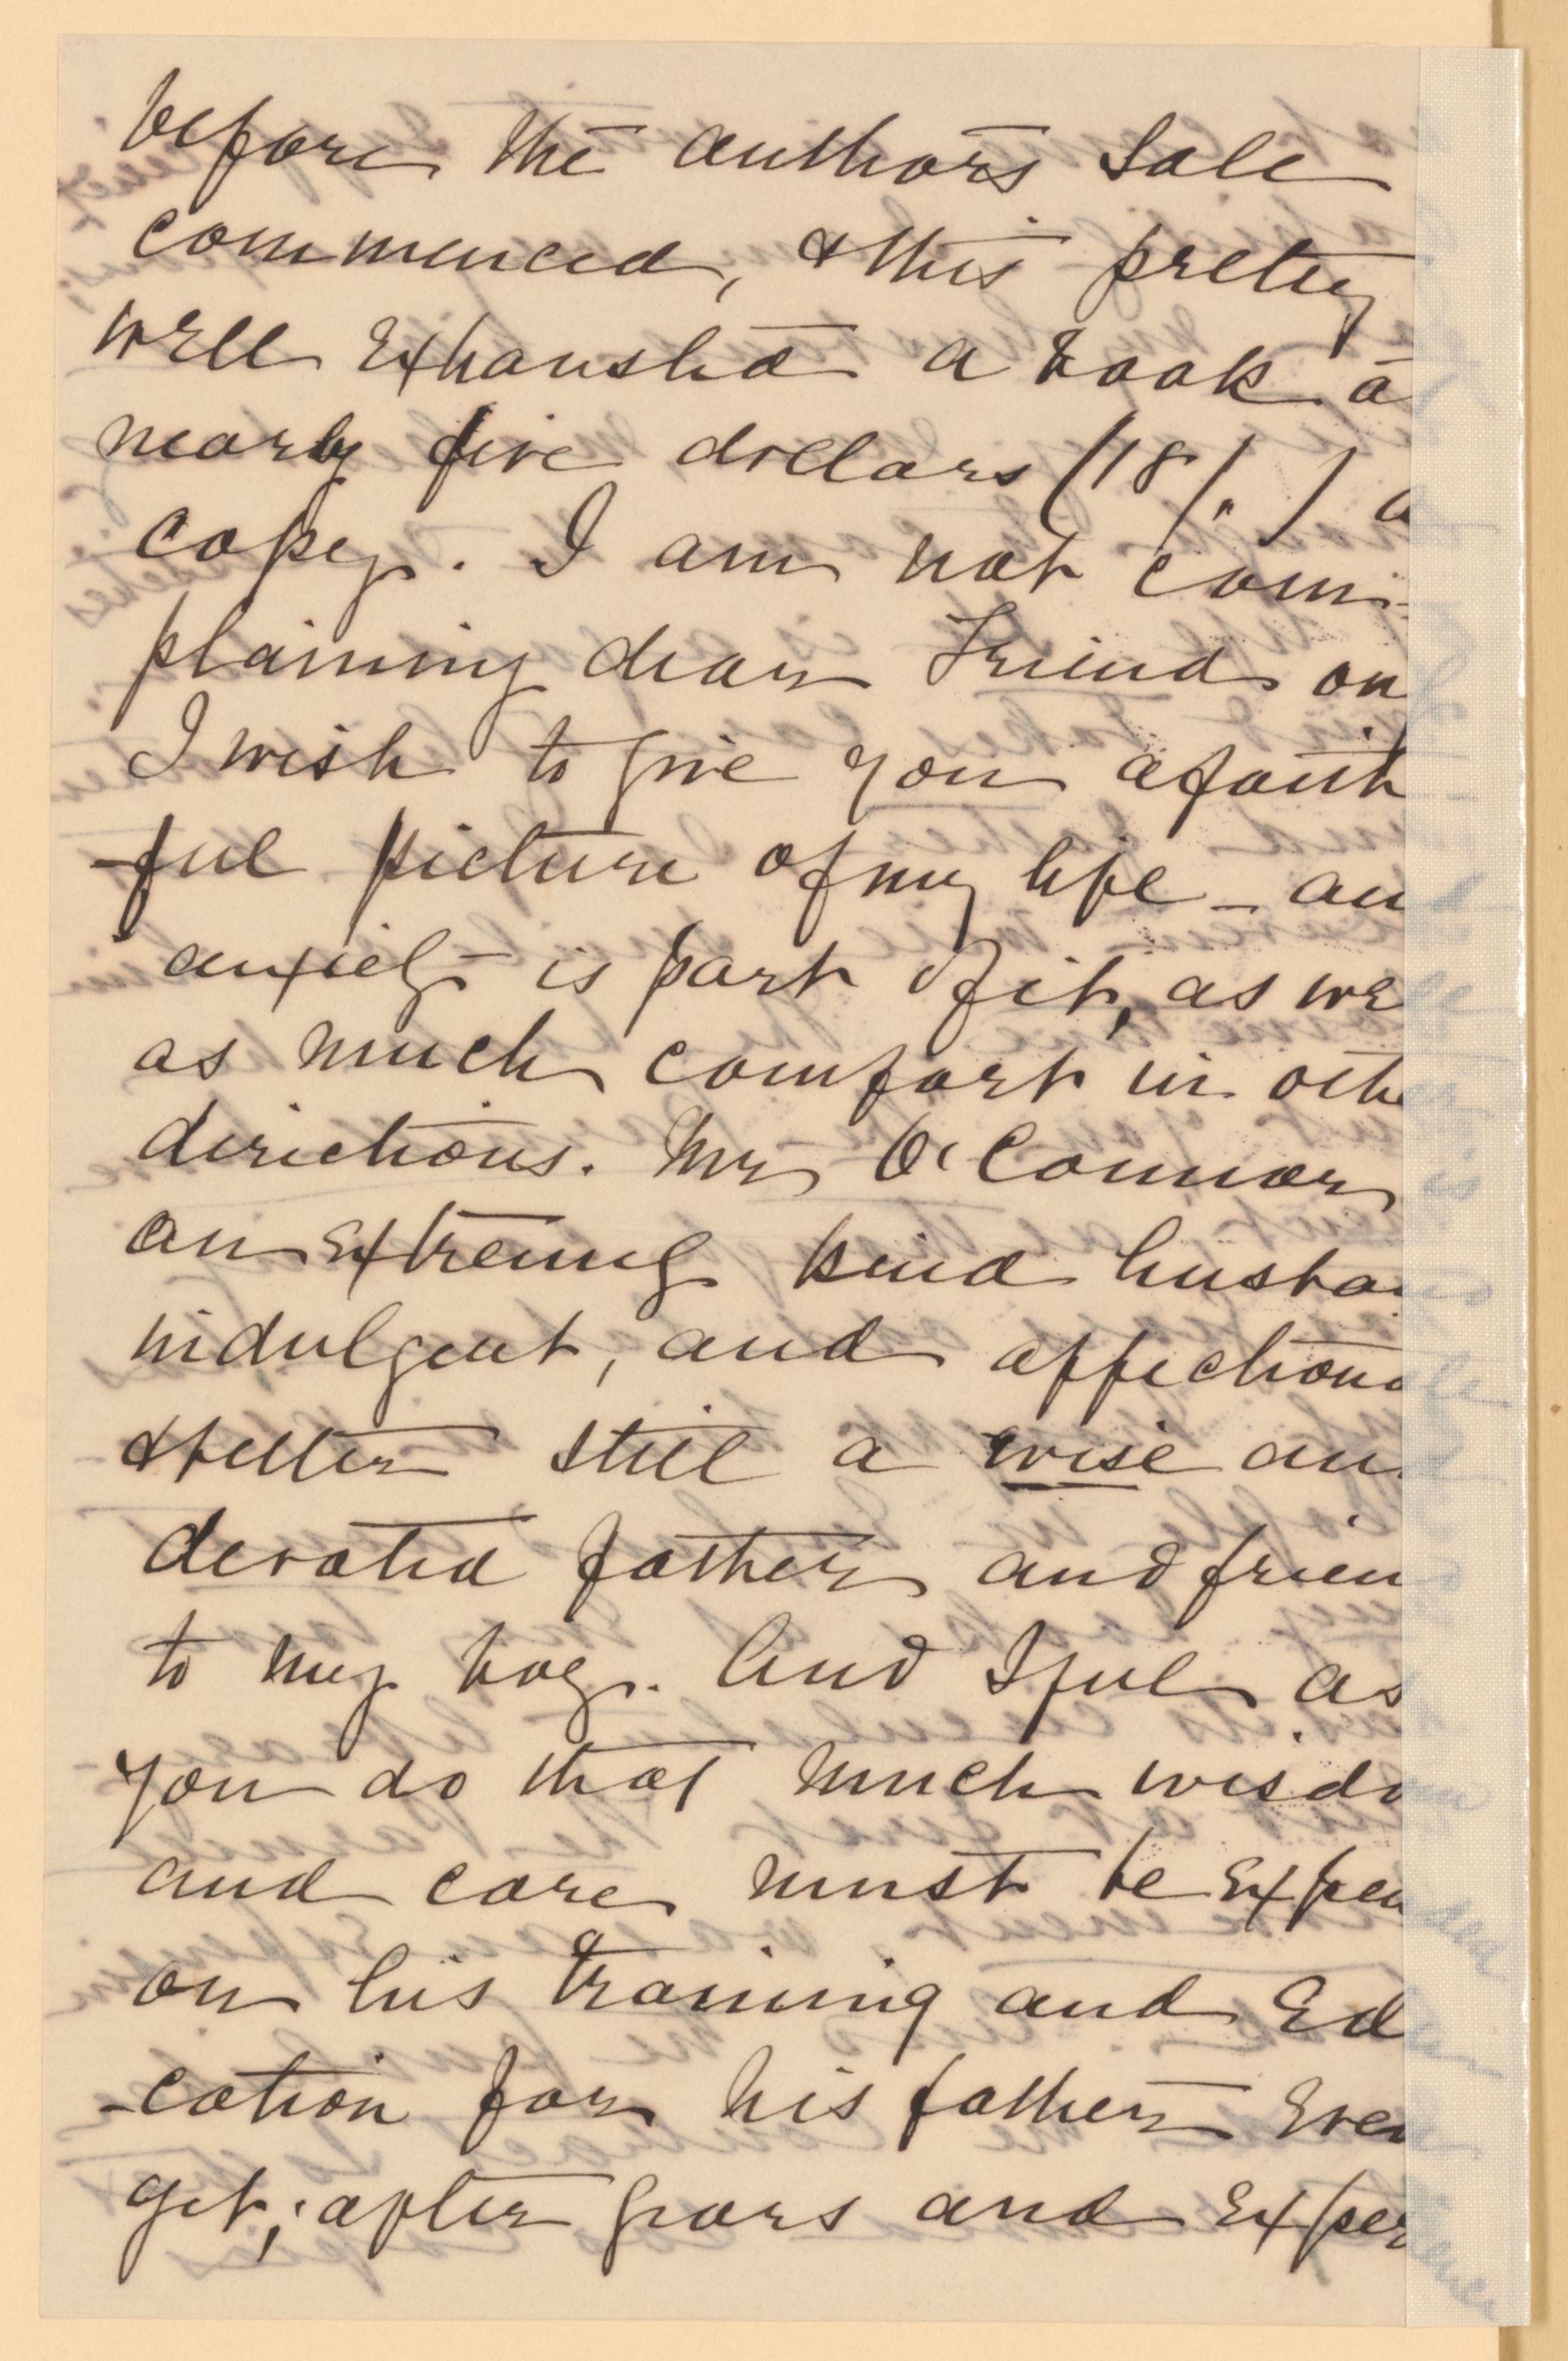 before the authors sale
commenced, & this pretty
well exhausted a book a
nearly five dollars (18/.) a
copy. I am not com-
plaining dear Friend on
I wish to give you a faith
-ful picture of my life - an
anxiety is part of it, as we
as much comfort in oth
directions. Mr O'Connor
an extremly kind husba
indulgent, and affectiona
& better still a wise an
devoted father and frien
to my boy. And I feel as
you do that much wisdo
and care must be expen
on his training and Ed
-cation for his father even
yet, after years and exper